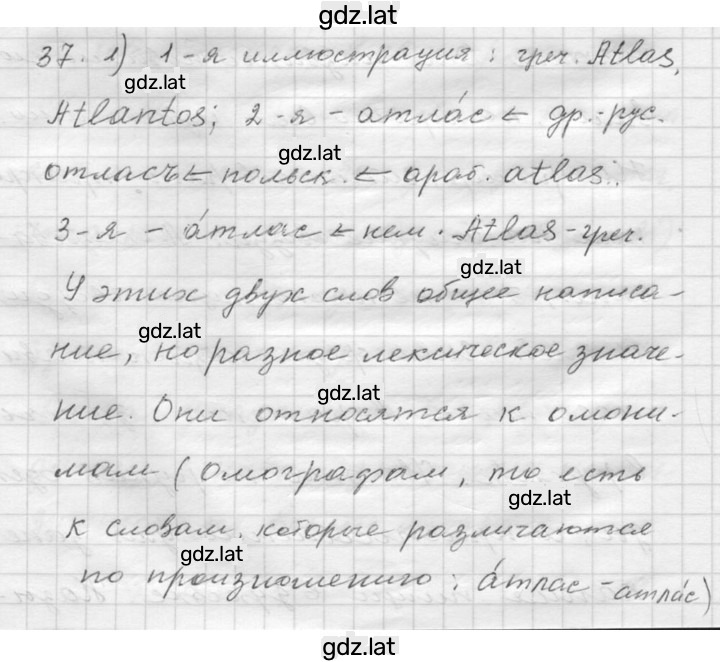 gdz.lat
37. 1) 1-я иллюстрация: греч. Atlas,
gdz.lat
Atlantos; 2-я - атла́с ← др.-рус.
gdz.lat
отласъ ← польск. ← араб. atlas;
3-я - а́тлас ← нем. Atlas - греч.
gdz.lat
У этих двух слов общее написа-
gdz.lat
ние, но разное лексическое значе-
gdz.lat
ние. Они относятся к омони-
мам (омографам, то есть
gdz.lat
к словам, которые различаются
gdz.lat
по произношению: а́тлас - атла́с)
gdz.lat